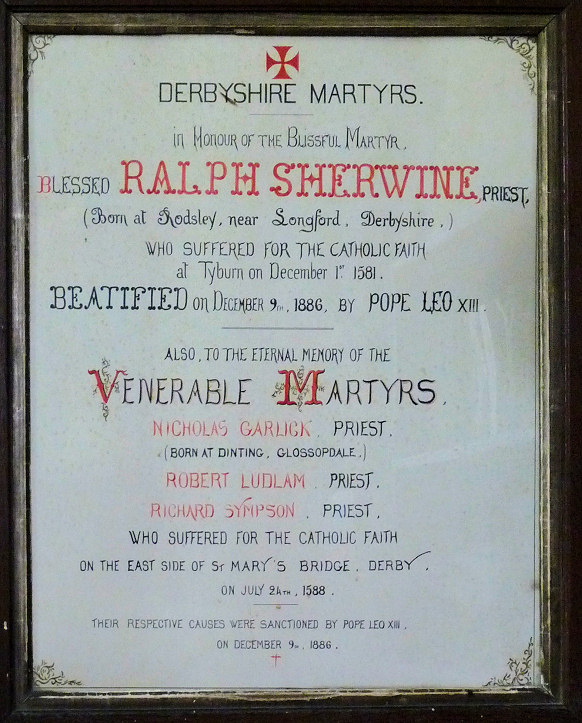 DERBYSHIRE MARTYRS.
in Honour of the Blissful Martyr,
BLESSED RALPH SHERWINE, PRIEST,
(Born at Rodsley, near Longford, Derbyshire,)
WHO SUFFERED FOR THE CATHOLIC FAITH
at Tyburn on December 1st 1581.
BEATIFIED on December 9th, 1886, BY POPE LEO XIII.
ALSO, TO THE ETERNAL MEMORY OF THE
VENERABLE MARTYRS,
NICHOLAS GARLICK, PRIEST,
(BORN AT DINTING, GLOSSOPDALE,)
ROBERT LUDLAM, PRIEST,
RICHARD SYMPSON, PRIEST,
WHO SUFFERED FOR THE CATHOLIC FAITH
ON THE EAST SIDE OF St MARY'S BRIDGE, DERBY,
ON JULY 24TH, 1588.
THEIR RESPECTIVE CAUSES WERE SANCTIONED BY POPE LEO XIII.
ON DECEMBER 9th, 1886.